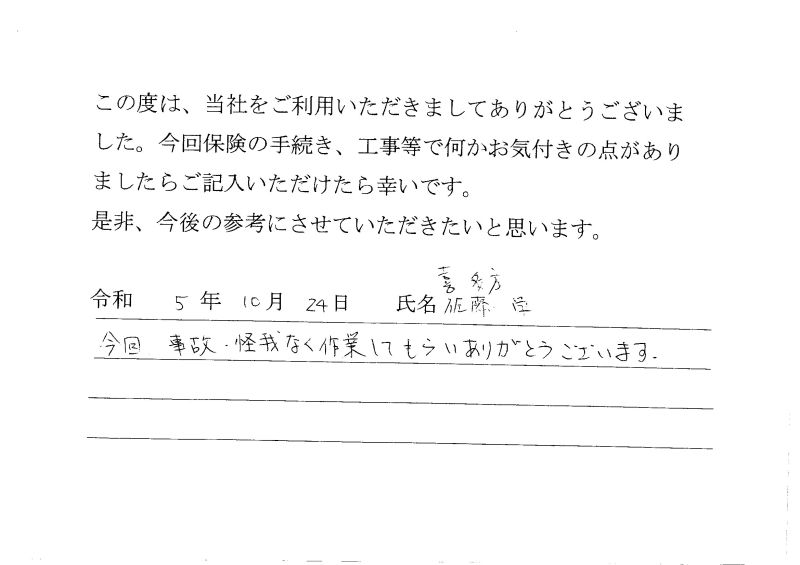 この度は、当社をご利用いただきましてありがとうございま
した。今回保険の手続き、工事等で何かお気付きの点があり
ましたらご記入いただけたら幸いです。
是非、今後の参考にさせていただきたいと思います。
喜多方
令和 5年 10月 24日 氏名 佐藤 学
今回 事故・怪我なく作業してもらいありがとうございます.